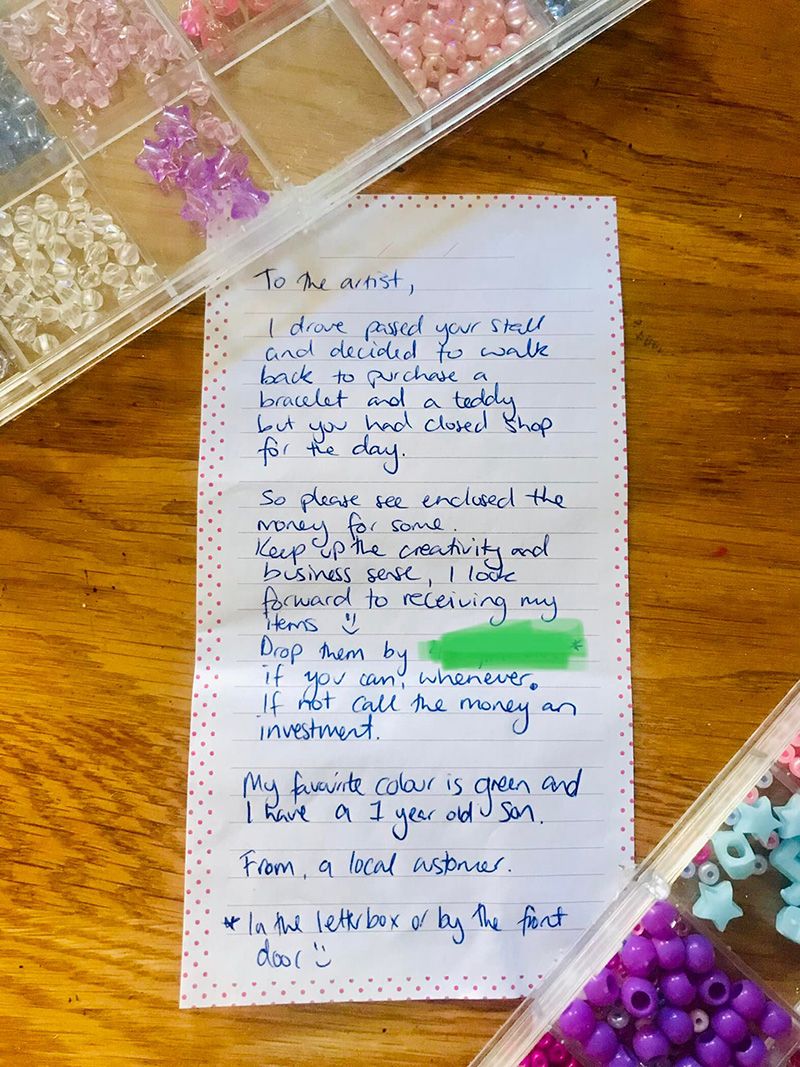 To the artist,
I drove passed your stall
and decided to walk
back to purchase a
bracelet and a teddy
but you had closed shop
for the day.
So please see enclosed the
money for some.
Keep up the creativity and
business sense, I look
forward to receiving my
items :)
Drop them by *
if you can, whenever.
If not call the money an
investment.
My favourite colour is green and
I have a 1 year old son.
From, a local customer.
* In the letterbox or by the front
door :)